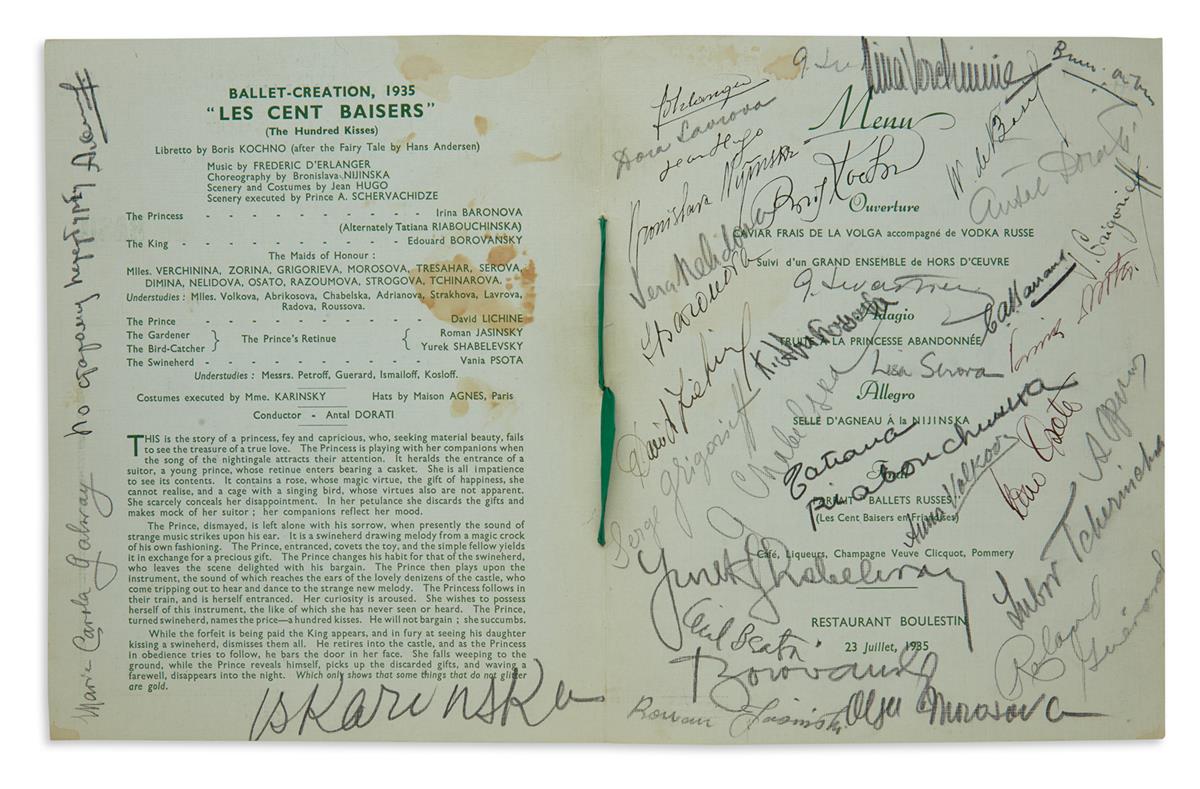 BALLET-CREATION, 1935
"LES CENT BAISERS"
(The Hundred Kisses)
Libretto by Boris KOCHNO (after the Fairy Tale by Hans Andersen)
Music by FREDERIC D'ERLANGER
Choreography by Bronislava NIJINSKA
Scenery and Costumes by Jean HUGO
Scenery executed by Prince A. SCHERVACHIDZE
The Princess - - - - - - - - Irina BARONOVA
(Alternately Tatiana RIABOUCHINSKA)
The King - - - - - - - - Edouard BOROVANSKY
The Maids of Honour :
Mlles. VERCHININA, ZORINA, GRIGORIEVA, MOROSOVA, TRESAHAR, SEROVA,
DIMINA, NELIDOVA, OSATO, RAZOUMOVA, STROGOVA, TCHINAROVA.
Understudies : Mlles. Volkova, Abrikosova, Chabelska, Adrianova, Strakhova, Lavrova,
Radova, Roussova.
The Prince - - - - - - - - David LICHINE
The Gardener } The Prince's Retinue { Roman JASINSKY
The Bird-Catcher } { Yurek SHABELEVSKY
The Swineherd - - - - - - - - Vania PSOTA
Understudies : Messrs. Petroff, Guerard, Ismailoff, Kosloff.
Costumes executed by Mme. KARINSKY Hats by Maison AGNES, Paris
Conductor - Antal DORATI
THIS is the story of a princess, fey and capricious, who, seeking material beauty, fails
to see the treasure of a true love. The Princess is playing with her companions when
the song of the nightingale attracts their attention. It heralds the entrance of a
suitor, a young prince, whose retinue enters bearing a casket. She is all impatience
to see its contents. It contains a rose, whose magic virtue, the gift of happiness, she
cannot realise, and a cage with a singing bird, whose virtues also are not apparent.
She scarcely conceals her disappointment. In her petulance she discards the gifts and
makes mock of her suitor ; her companions reflect her mood.
The Prince, dismayed, is left alone with his sorrow, when presently the sound of
strange music strikes upon his ear. It is a swineherd drawing melody from a magic crock
of his own fashioning. The Prince, entranced, covets the toy, and the simple fellow yields
it in exchange for a precious gift. The Prince changes his habit for that of the swineherd,
who leaves the scene delighted with his bargain. The Prince then plays upon the
instrument, the sound of which reaches the ears of the lovely denizens of the castle, who
come tripping out to hear and dance to the strange new melody. The Princess follows in
their train, and is herself entranced. Her curiosity is aroused. She wishes to possess
herself of this instrument, the like of which she has never seen or heard. The Prince,
turned swineherd, names the price—a hundred kisses. He will not bargain ; she succumbs.
While the forfeit is being paid the King appears, and in fury at seeing his daughter
kissing a swineherd, dismisses them all. He retires into the castle, and as the Princess
in obedience tries to follow, he bars the door in her face. She falls weeping to the
ground, while the Prince reveals himself, picks up the discarded gifts, and waving a
farewell, disappears into the night. Which only shows that some things that do not glitter
are gold.
Marie Carola Galway
Karinska
Nina Verchinina
FD'Erlanger
Dora Lavrova
Jean Hugo
Bronislava Nijinska
Menu
W. de Basil
Boris Kochno
Antal Dorati
Ouverture
Vera Nelidova
CAVIAR FRAIS DE LA VOLGA accompagné de VODKA RUSSE
Suivi d'un GRAND ENSEMBLE de HORS D'ŒUVRE
Adagio
FRUITE À LA PRINCESSE ABANDONNÉE
Lisa Serova
Allegro
SELLE D'AGNEAU À la NIJINSKA
David Lichine
Serge Grigorieff
G Chabelska
Tatiana
Riabouchinska
Anna Volkova
Sono Osato
PARFAIT "BALLETS RUSSES"
(Les Cent Baisers en Friandises)
Café, Liqueurs, Champagne Veuve Clicquot, Pommery
Yurek Shabelevsky
Lubov Tcherinicheva
Roland Guérard
RESTAURANT BOULESTIN
23 Juillet, 1935
Borovansky
Roman Jasinski
Olga Morosova